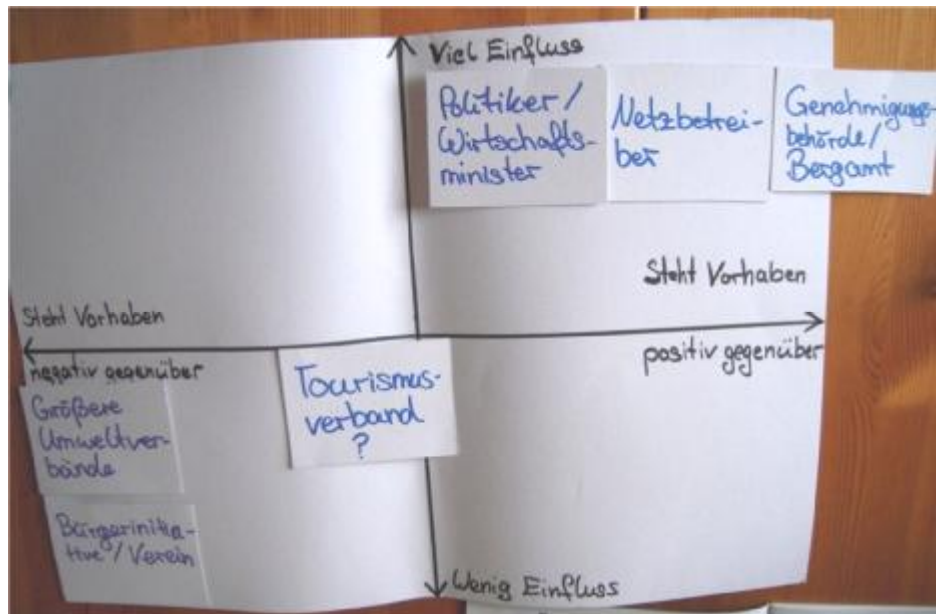 Viel Einfluss
Politiker /
Wirtschafts-
minister
Netzbetrei-
ber
Genehmigungs-
behörde/
Bergamt
Steht Vorhaben
negativ gegenüber
Steht Vorhaben
positiv gegenüber
Größere
Umweltver-
bände
Tourismus-
verband
?
Bürgerinitia-
tive / Verein
Wenig Einfluss